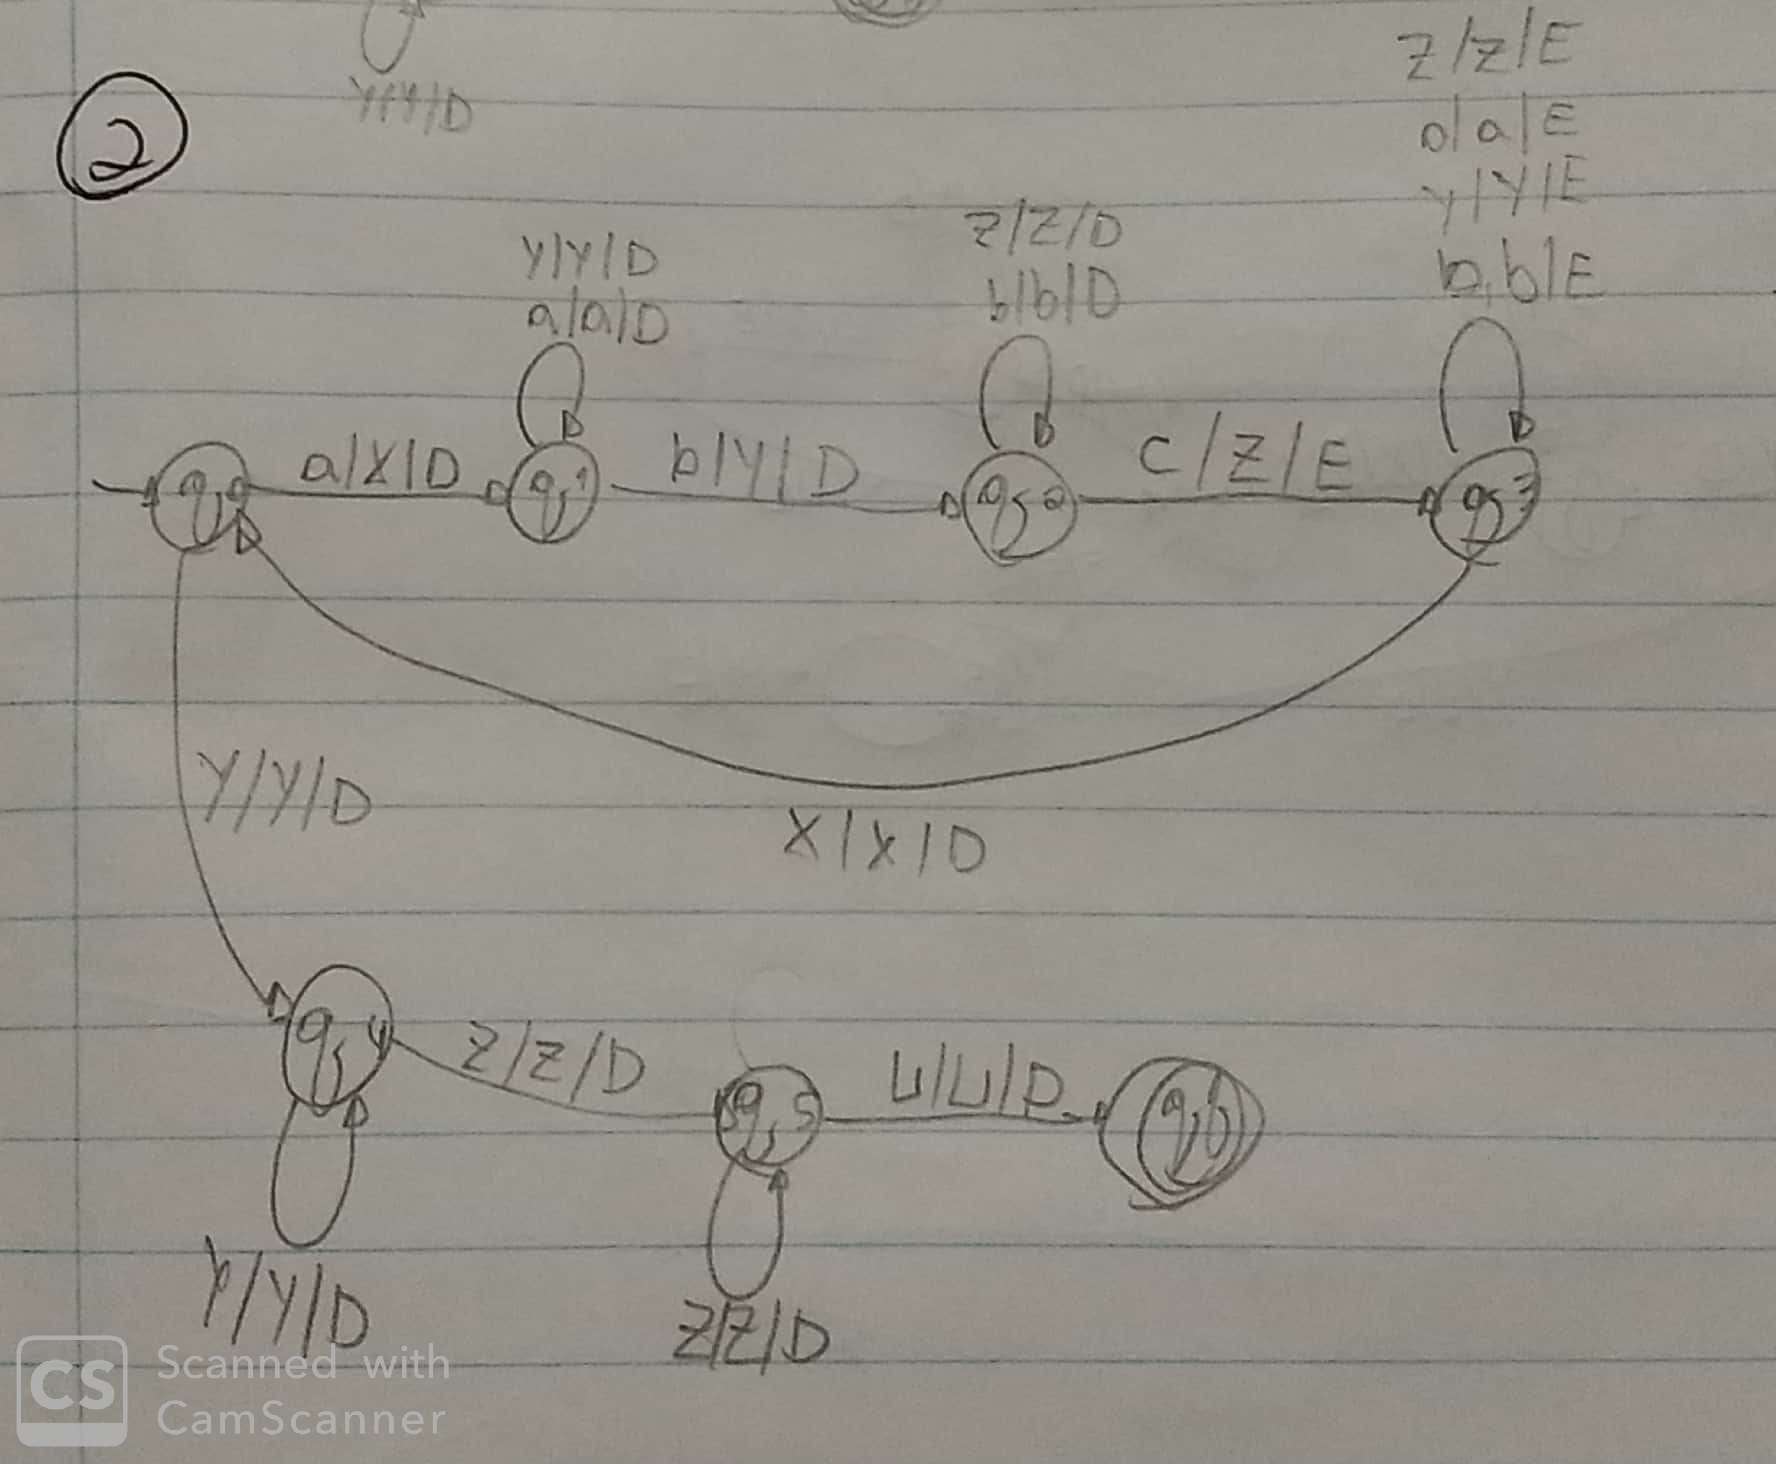 Y/Y/D
2
Z/Z/E
a/a/E
Y/Y/E
b,b/E
Y/Y/D
a/a/D
Z/Z/D
b/b/D
q0
a/X/D
q1
b/Y/D
q2
C/Z/E
q3
Y/Y/D
X/X/D
q4
Z/Z/D
q5
⊔/⊔/D
q6
Y/Y/D
Z/Z/D
CS Scanned with
CamScanner